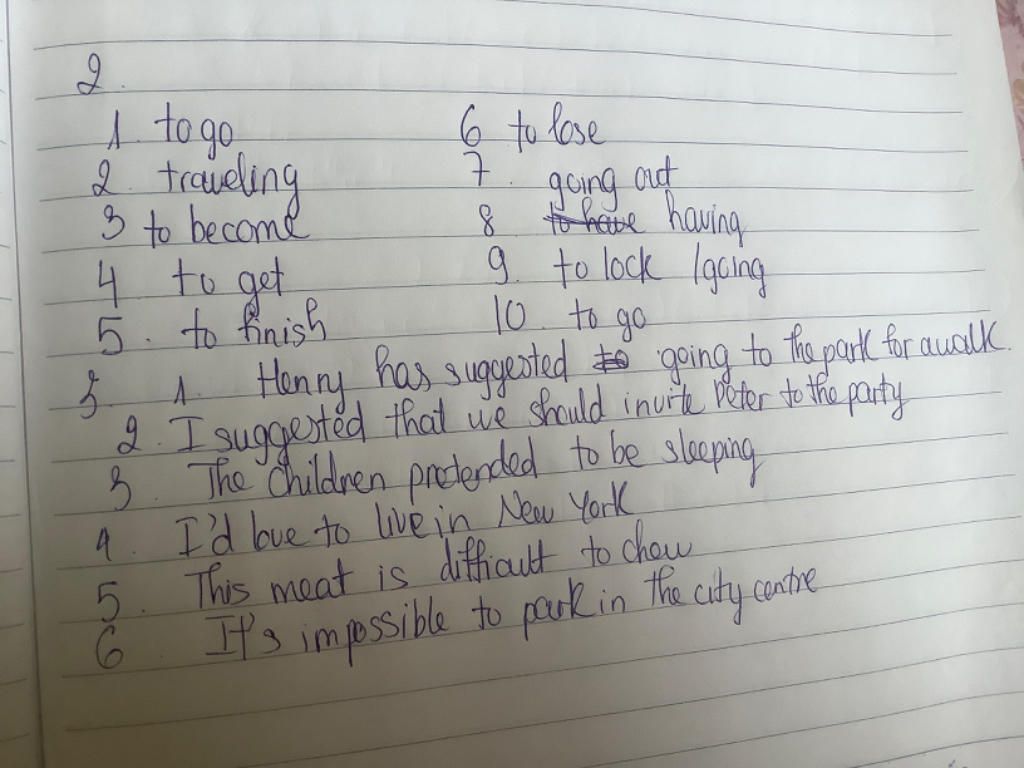 2.
1. to go
2. traveling
3 to become
4 to get
5. to finish
6 to lose
7. going out
8 to have having
9. to lock / going
10. to go
3 1. Henry has suggested to going to the park for a walk.
2. I suggested that we should invite Peter to the party
3. The children pretended to be sleeping
4. I'd love to live in New York
5. This meat is difficult to chew
6. It's impossible to park in the city centre